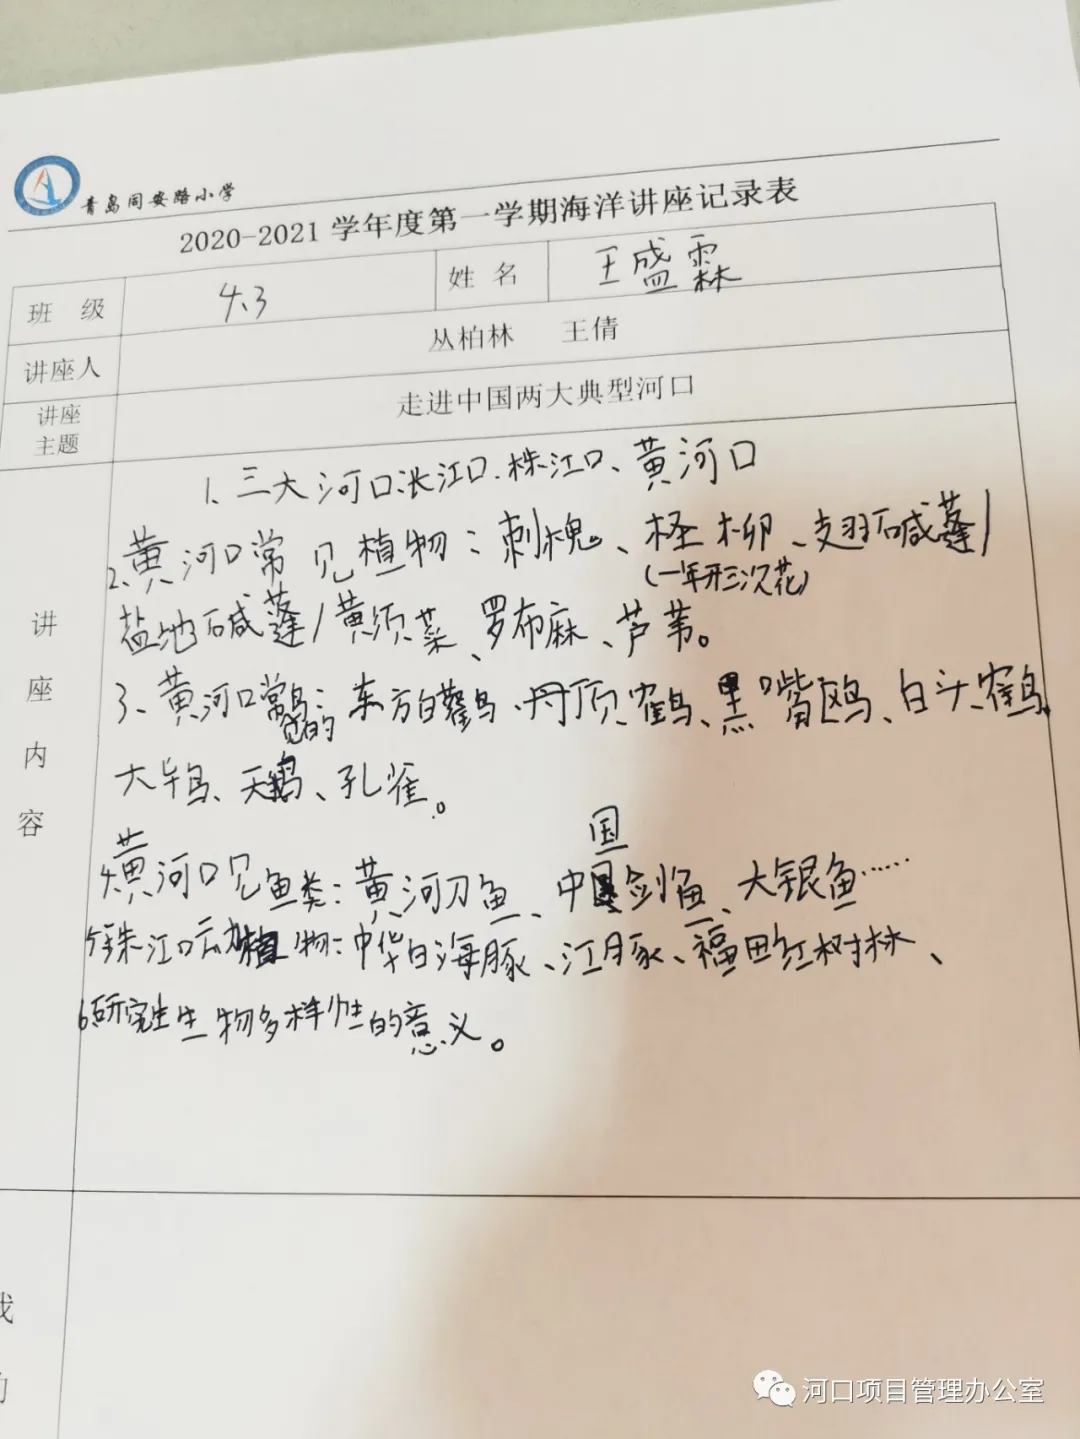 青岛同安路小学
2020-2021 学年度第一学期海洋讲座记录表
班 级 4.3 姓 名 王盛霖
讲座人 丛柏林 王倩
讲座主题 走进中国两大典型河口
讲座内容
1、三大河口:长江口、株江口、黄河口
2、黄河口常见植物:刺槐、柽柳、翅碱蓬/
(一年开三次花)
盐地碱蓬/黄须菜、罗布麻、芦苇。
3、黄河口常见的鸟:东方白鹳、丹顶鹤、黑嘴鸥、白头鹤、
大鸨、天鹅、孔雀。
4黄河口见鱼类:黄河刀鱼、中国剑鱼、大银鱼……
国
5珠江口动植物:中华白海豚、江豚、福田红树林、
6研究生物多样性的意义。
我
的
河口项目管理办公室